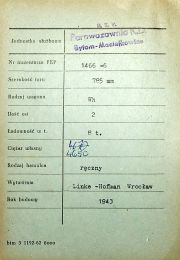 Jednostka służbowa
Parowozownia K.D.
Bytom-
Nr inwentarza PKP 1466
Szerokość toru 785 mm
Rodzaj wagonu Wh
Ilość osi 2
Ładowność w t. 8 t.
Ciężar własny
Rodzaj hamulca ręczny
Wytwórnia Linke -Hofman Wrocław
Rok budowy 1943